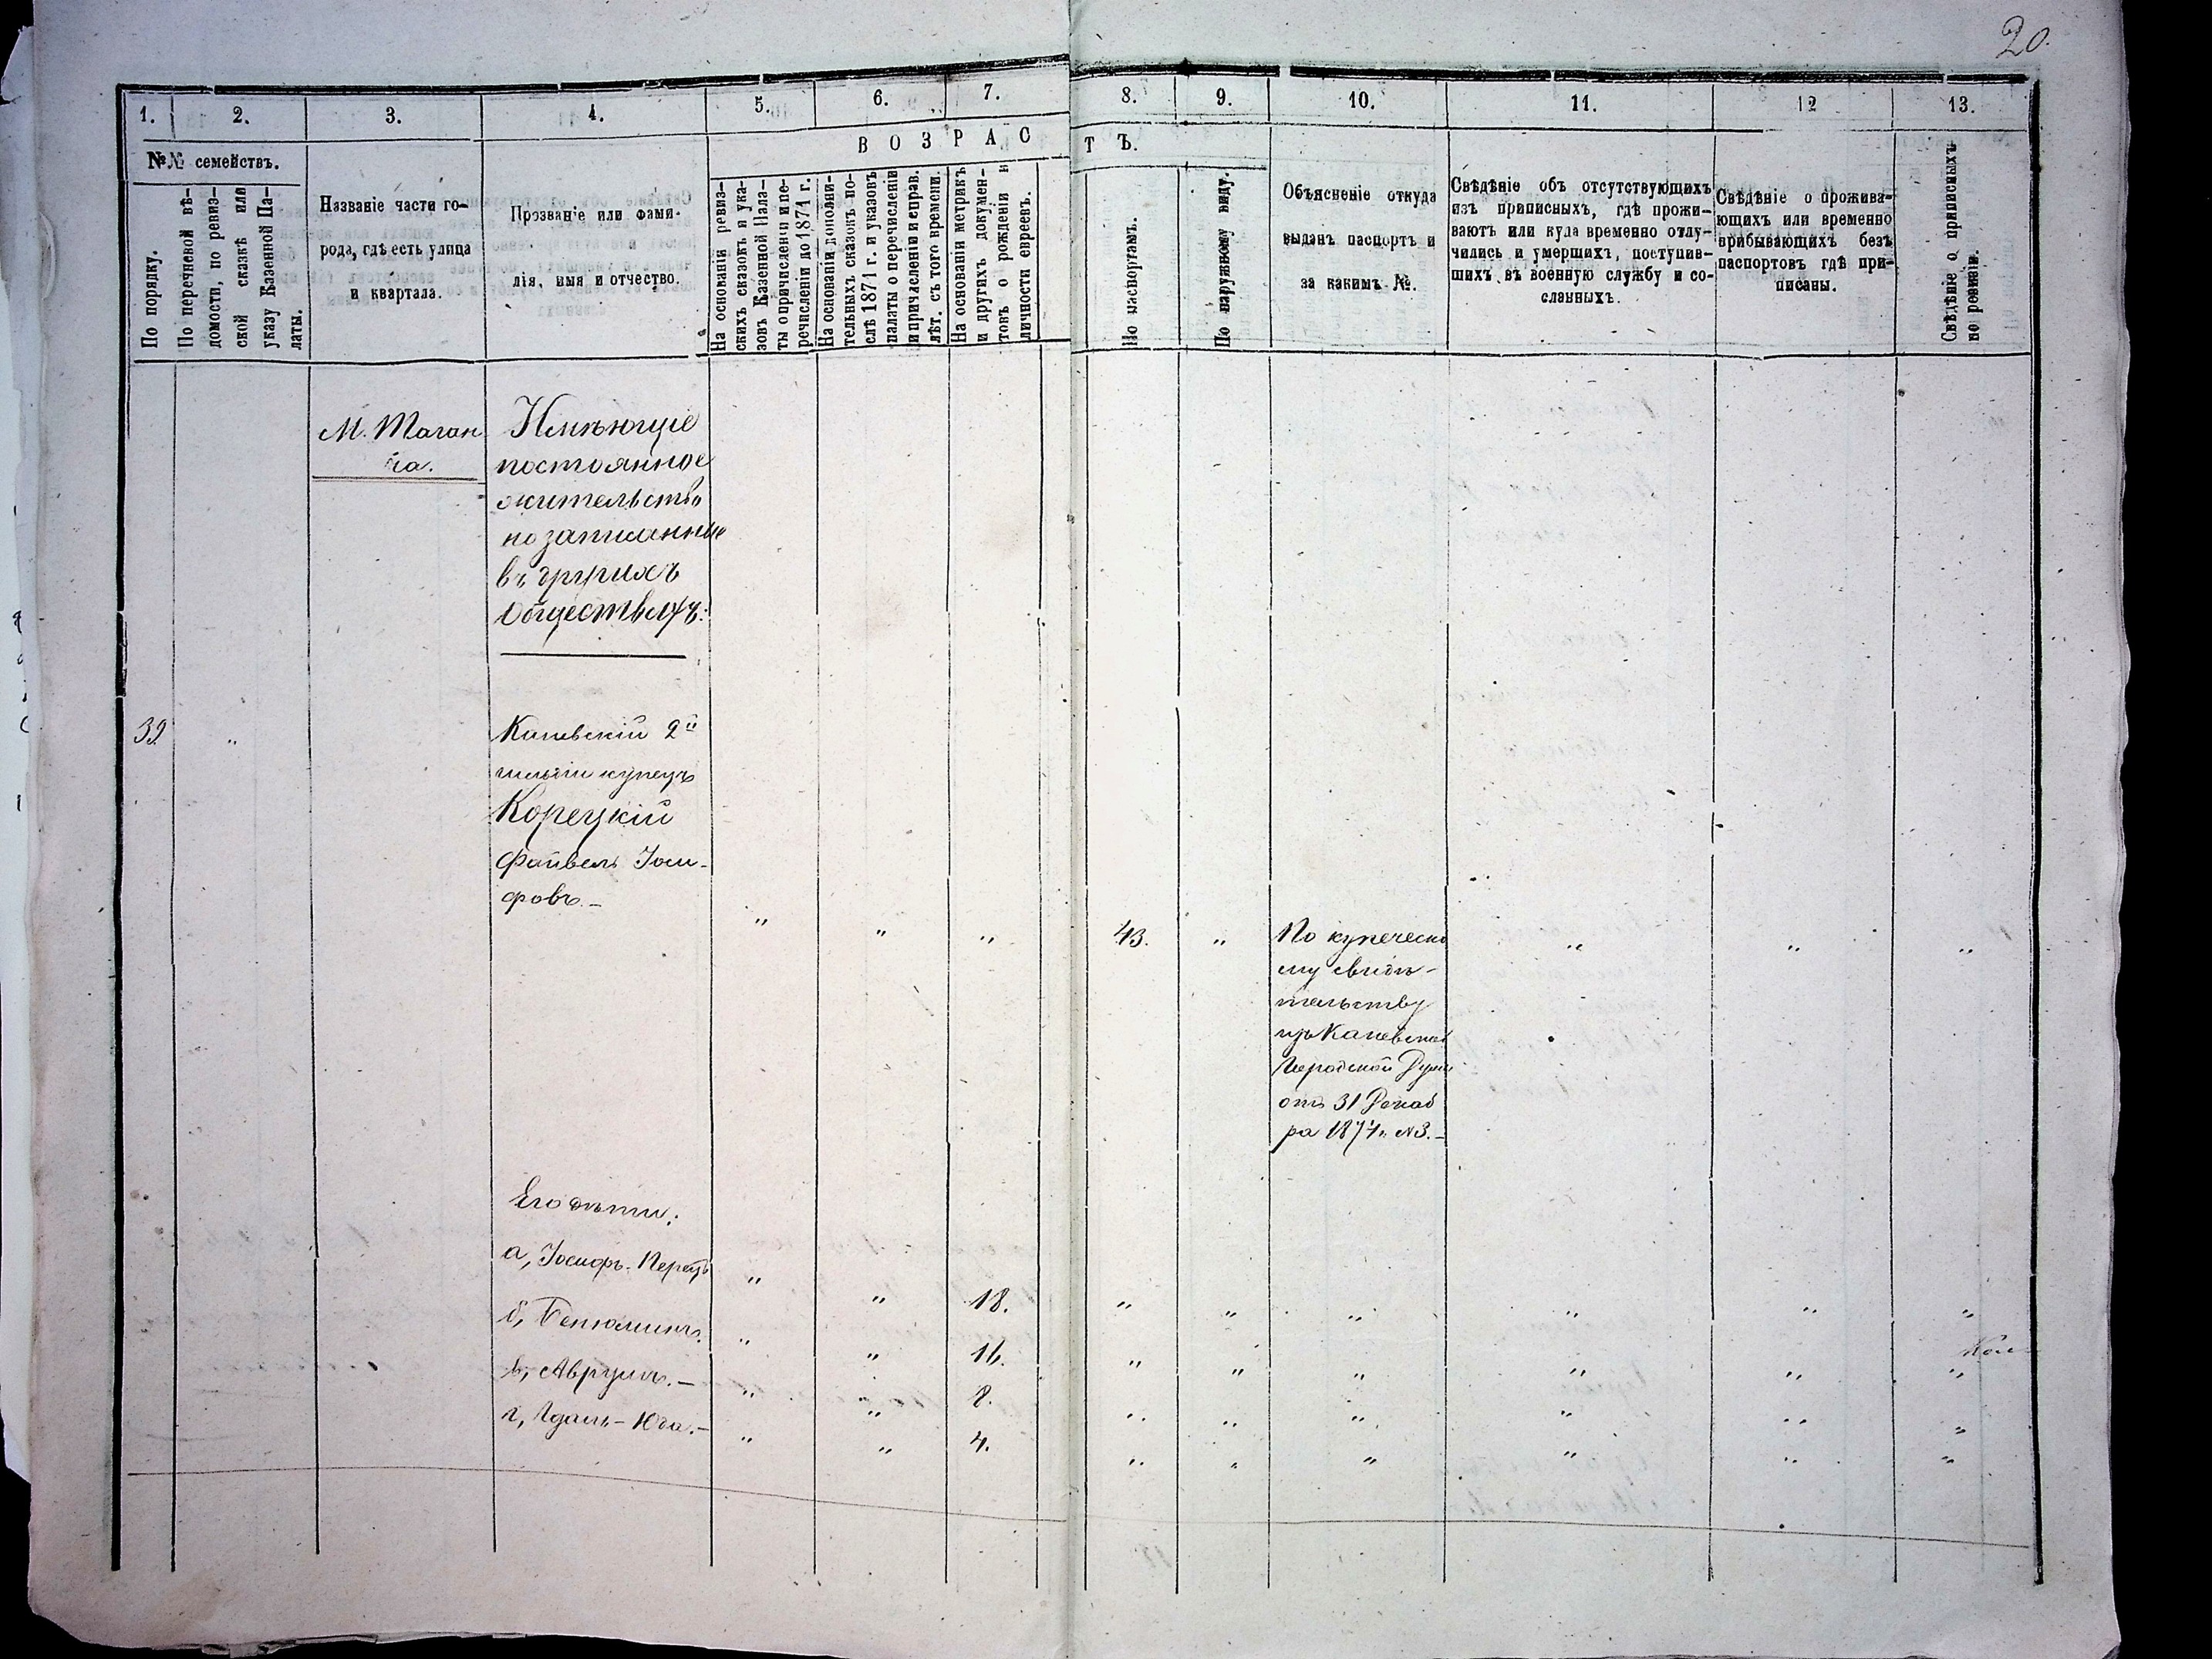 20.
1.
2.
3.
4.
5.
6.
7.
8.
9.
10.
11.
12
13.
№№ семействъ.
ВОЗРАС
ТЪ.
По порядку.
По перечневой вѣ-
домости, по ревиз-
ской сказкѣ или
указу Казенной Па-
латы.
Названіе части го-
рода, гдѣ есть улица
и квартала.
Прозваніе или фами-
лія, имя и отчество.
На основаніи ревиз-
скихъ сказокъ и ука-
зовъ Казенной Пала-
ты о причисленіи и пе-
речисленіи до 1871 г.
На основаніи дополни-
тельныхъ сказокъ по-
слѣ 1871 г. и указовъ
палаты о перечисленіи
и причисленіи и справ.
лѣт. съ того времени.
На основаніи метрикъ
и другихъ докумен-
товъ о рожденіи и
личности евреевъ.
По паспортамъ.
По наружному виду.
Объясненіе откуда
выданъ паспортъ и
за какимъ №.
Свѣдѣніе объ отсутствующихъ
изъ приписныхъ, гдѣ прожи-
ваютъ или куда временно отлу-
чились и умершихъ, поступив-
шихъ въ военную службу и со-
сланныхъ.
Свѣдѣніе о прожива-
ющихъ или временно
прибывающихъ безъ
паспортовъ гдѣ при-
писаны.
Свѣдѣніе о приписныхъ
по ревизіи.
М. Таган
ча.
Имѣющіе
постоянное
жительство
но записанные
въ другихъ
Обществахъ:
39
"
Каневскій 2й
гильдіи купецъ
Корецкій
Файвель Іоси-
фовъ.-
" " " 43. " " " "
По купеческо
му свидѣ-
тельству
изъ Каневской
Городской Думы
отъ 31 Декаб
ра 1874 г. №3.-
Его дѣти:
а, Іосифъ-Перецъ " " 18. " " " " " "
б, Беніоминъ. " " 16. " " " " " "
в, Аврумъ.- " " 8. " " " " " "
г, Гдаль-Юда.- " " 4. " " " " " "